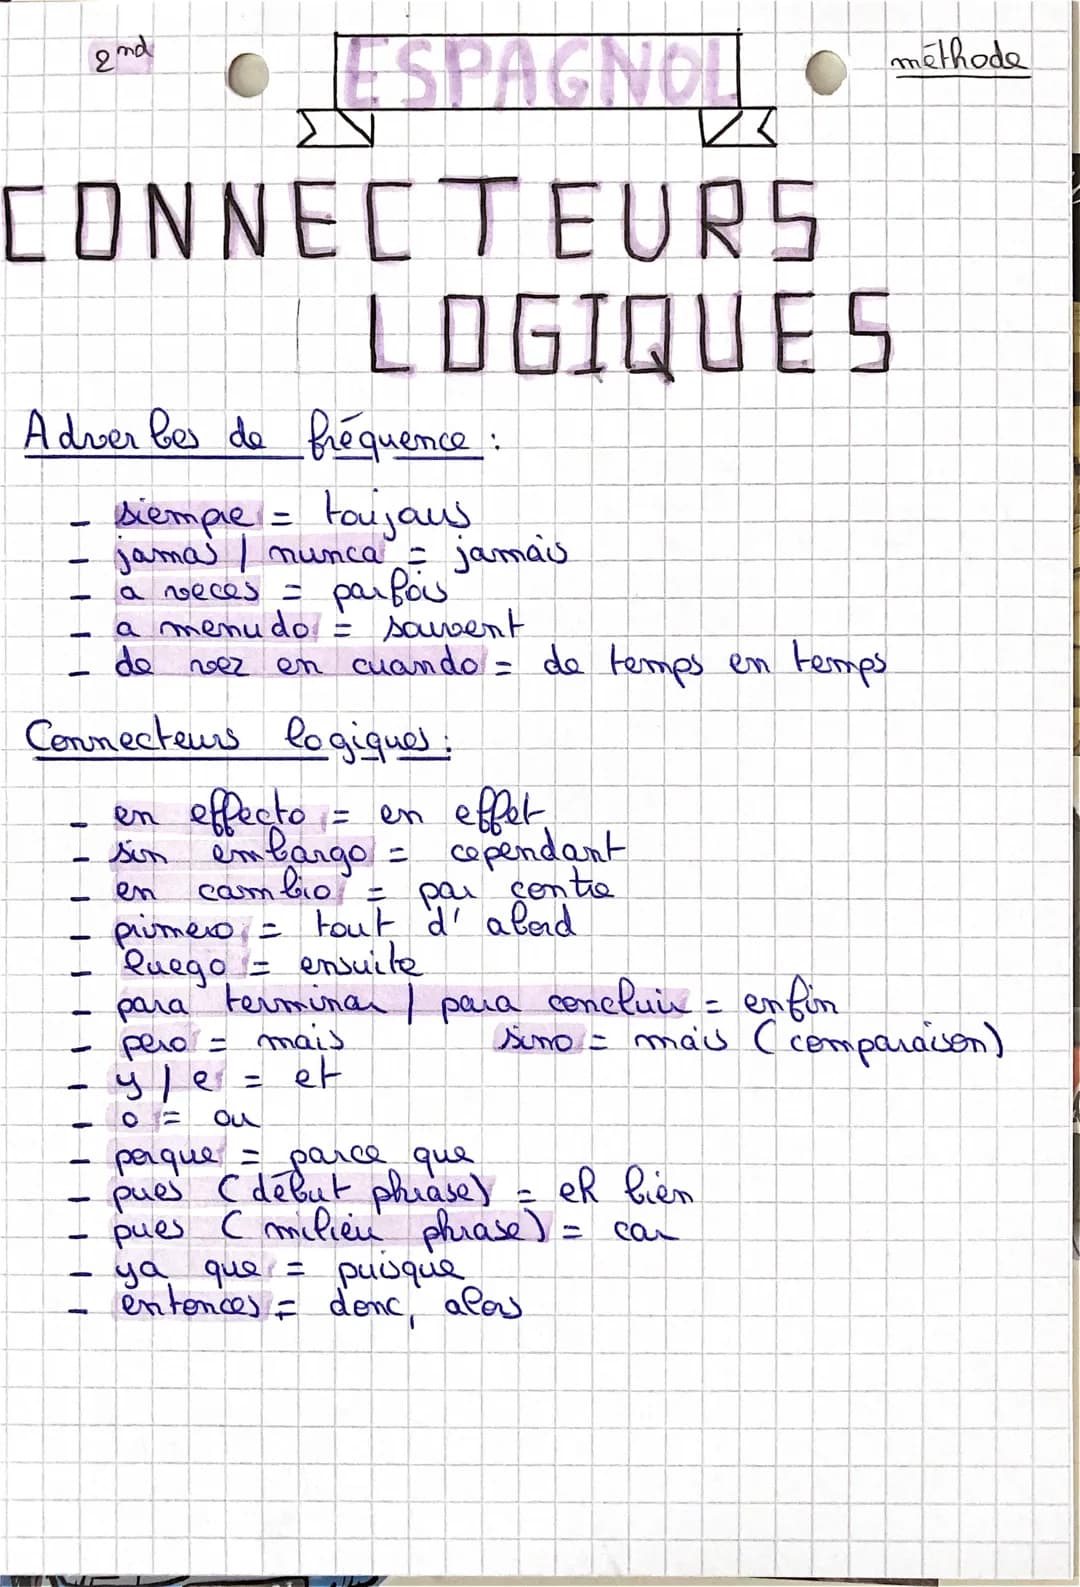 2nd
ESPAGNOL
méthode
CONNECTEURS
LOGIQUES
Adverbes de fréquence :
- siempre = toujours
- jamas / nunca = jamais
- a veces = parfois
- a menudo = souvent
- de vez en cuando = de temps en temps
Connecteurs logiques :
- en effecto = en effet
- sin embargo = cependant
- en cambio = par contre
- primero = tout d'abord
- luego = ensuite
- para terminar / para concluir = enfin
- pero = mais sino = mais (comparaison)
- y / e = et
- o = ou
- porque = parce que
- pues (début phrase) = eh bien
- pues (milieu phrase) = car
- ya que = puisque
- entonces = donc, alors